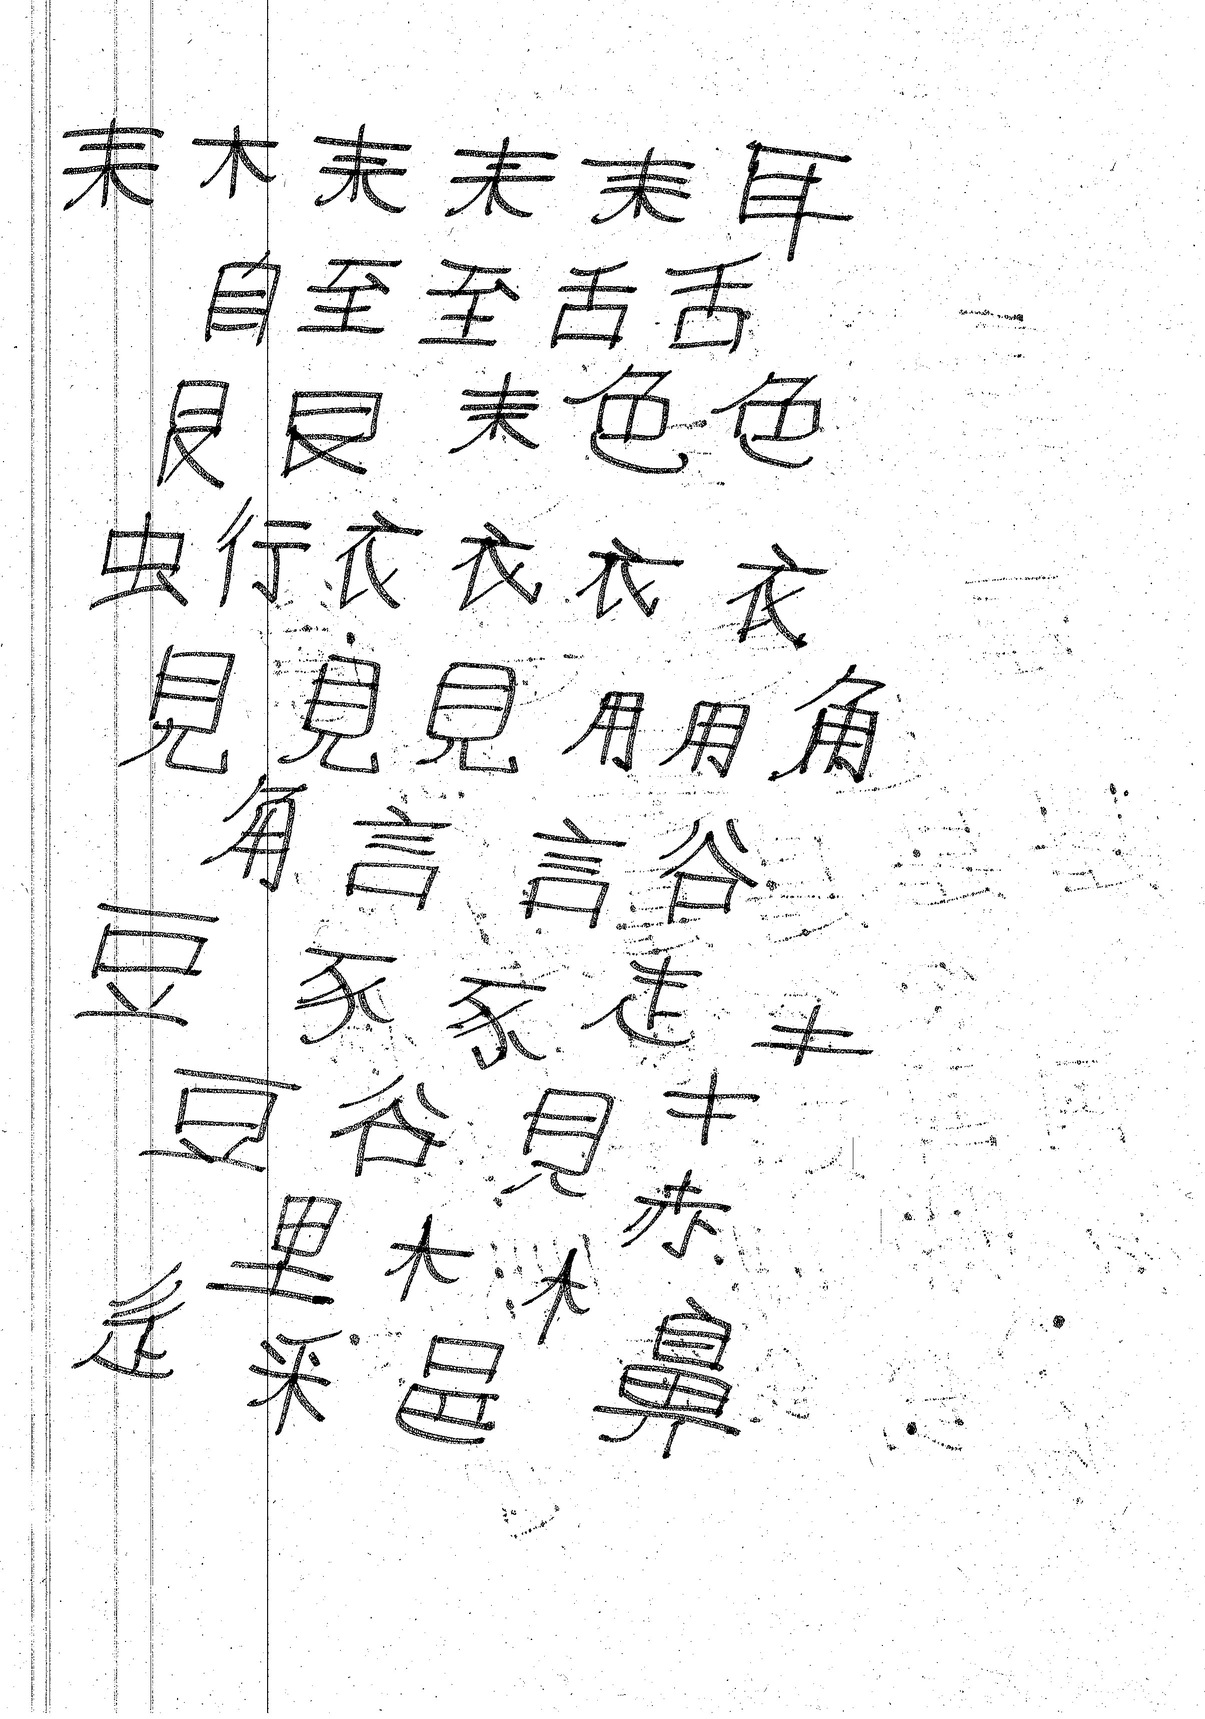 耒 木 耒 耒 耒 耳
自 至 至 舌 舌
艮 艮 耒 色 色
虫 行 衣 衣 衣 衣
見 見 見 用 用 角
角 言 言 谷
豆 豕 豕 走
豆 谷 見
里 木 木 赤
辵 釆 邑 鼻